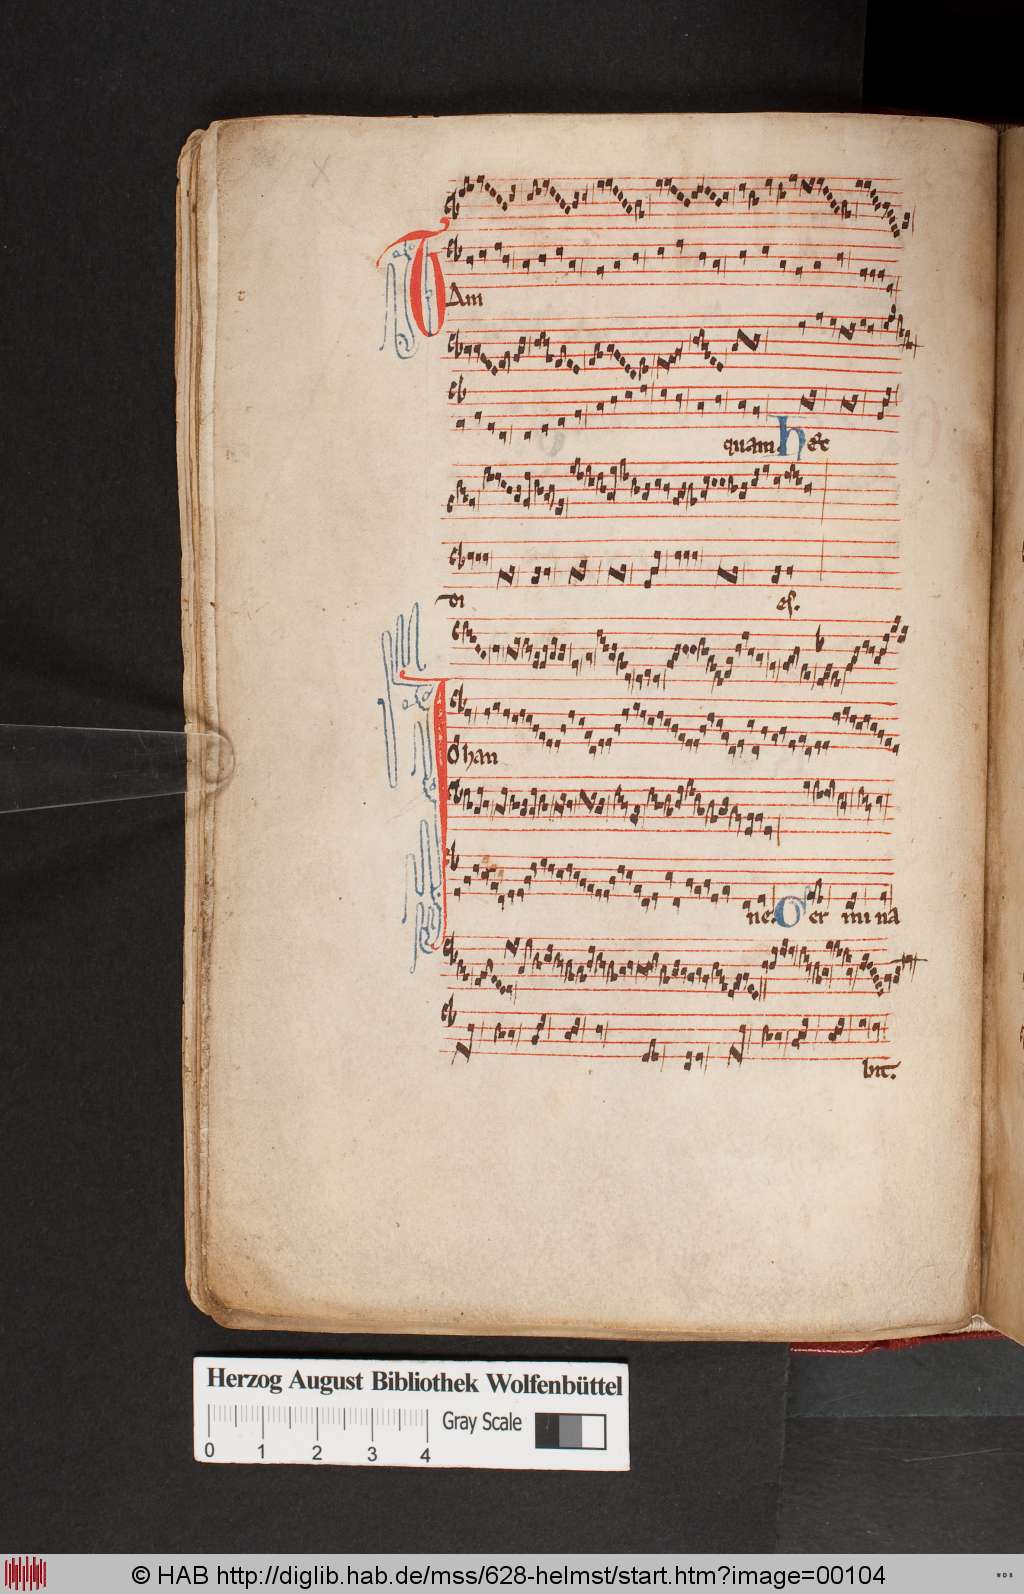 Am
quam. hec
di es.
Ohan
ne. Ger mi na
bit.
Herzog August Bibliothek Wolfenbüttel
Gray Scale
0 1 2 3 4
© HAB http://diglib.hab.de/mss/628-helmst/start.htm?image=00104